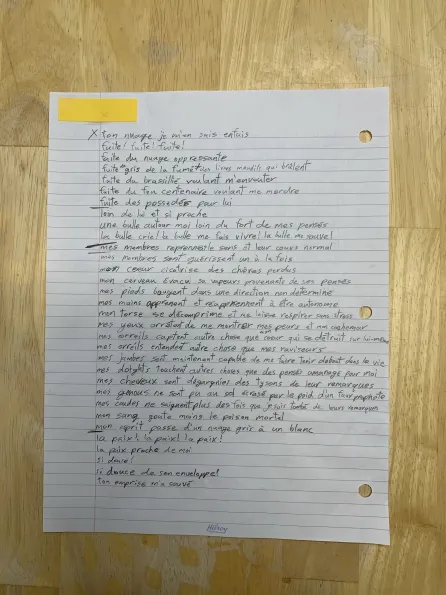 X ton nuage je m'en suis enfuis
fuite! fuite! fuite!
fuite du nuage oppressante
fuite gris de la fumé un livres maudits qui brûlent
fuite du brasillé voulant m'envouter
fuite du feu centenaire voulant me mordre
fuite des possedés par lui
loin de lui et si proche
une bulle autour moi loin du fort de mes pensés
la bulle crie! la bulle me fais vivre! la bulle me sauve!
mes membres reprennent le sens et leur cours normal
mes membres sont guérissent un à la fois
mon coeur cicatrise des chéros perdus
mon cerveau évacu sa vapeurs provenante de ses pensés
mes pieds bougent dans une direction non déterminé
mes mains apprenent et réapprennent à être autonome
mon torse se décomprime et me laisse respirer sans stress
mes yeux arrêtent de me montrer mes peurs et mon cauhemar
mes orreils captent autre chose que mon coeur qui se détruit sur lui-même
mes orreils entendent autre chose que mes nuiseurs
mes jambes sont maintenant capable de me faire tenir debout dans la vie
mes doights touchent autres choses que des pensés dommage pour moi
mes cheveux sont dégarnis des tysons de leur remarques
mes genous ne sont pu au sol écrasé par le poid d'un faux prophète
mes coudes ne saignent plus des fois que je suis tombé de leurs remarques
mon sang goute moins le poison mortel
mon esprit passe d'un nuage gris à un blanc
la paix! la paix! la paix!
la paix proche de moi
si douce!
si douce de son enveloppe!
ton emprise m'a sauvé
Hilroy